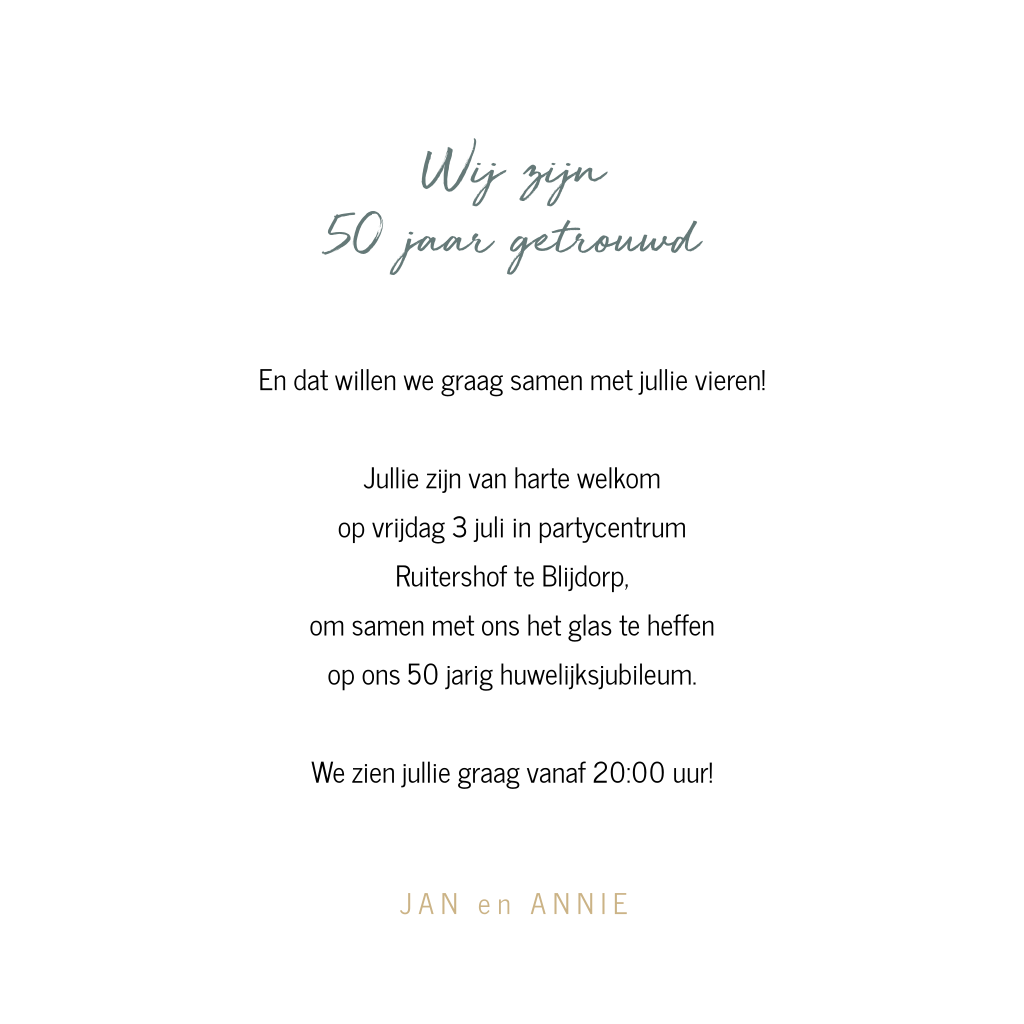 Wij zijn
50 jaar getrouwd
En dat willen we graag samen met jullie vieren!
Jullie zijn van harte welkom
op vrijdag 3 juli in partycentrum
Ruitershof te Blijdorp,
om samen met ons het glas te heffen
op ons 50 jarig huwelijksjubileum.
We zien jullie graag vanaf 20:00 uur!
JAN en ANNIE